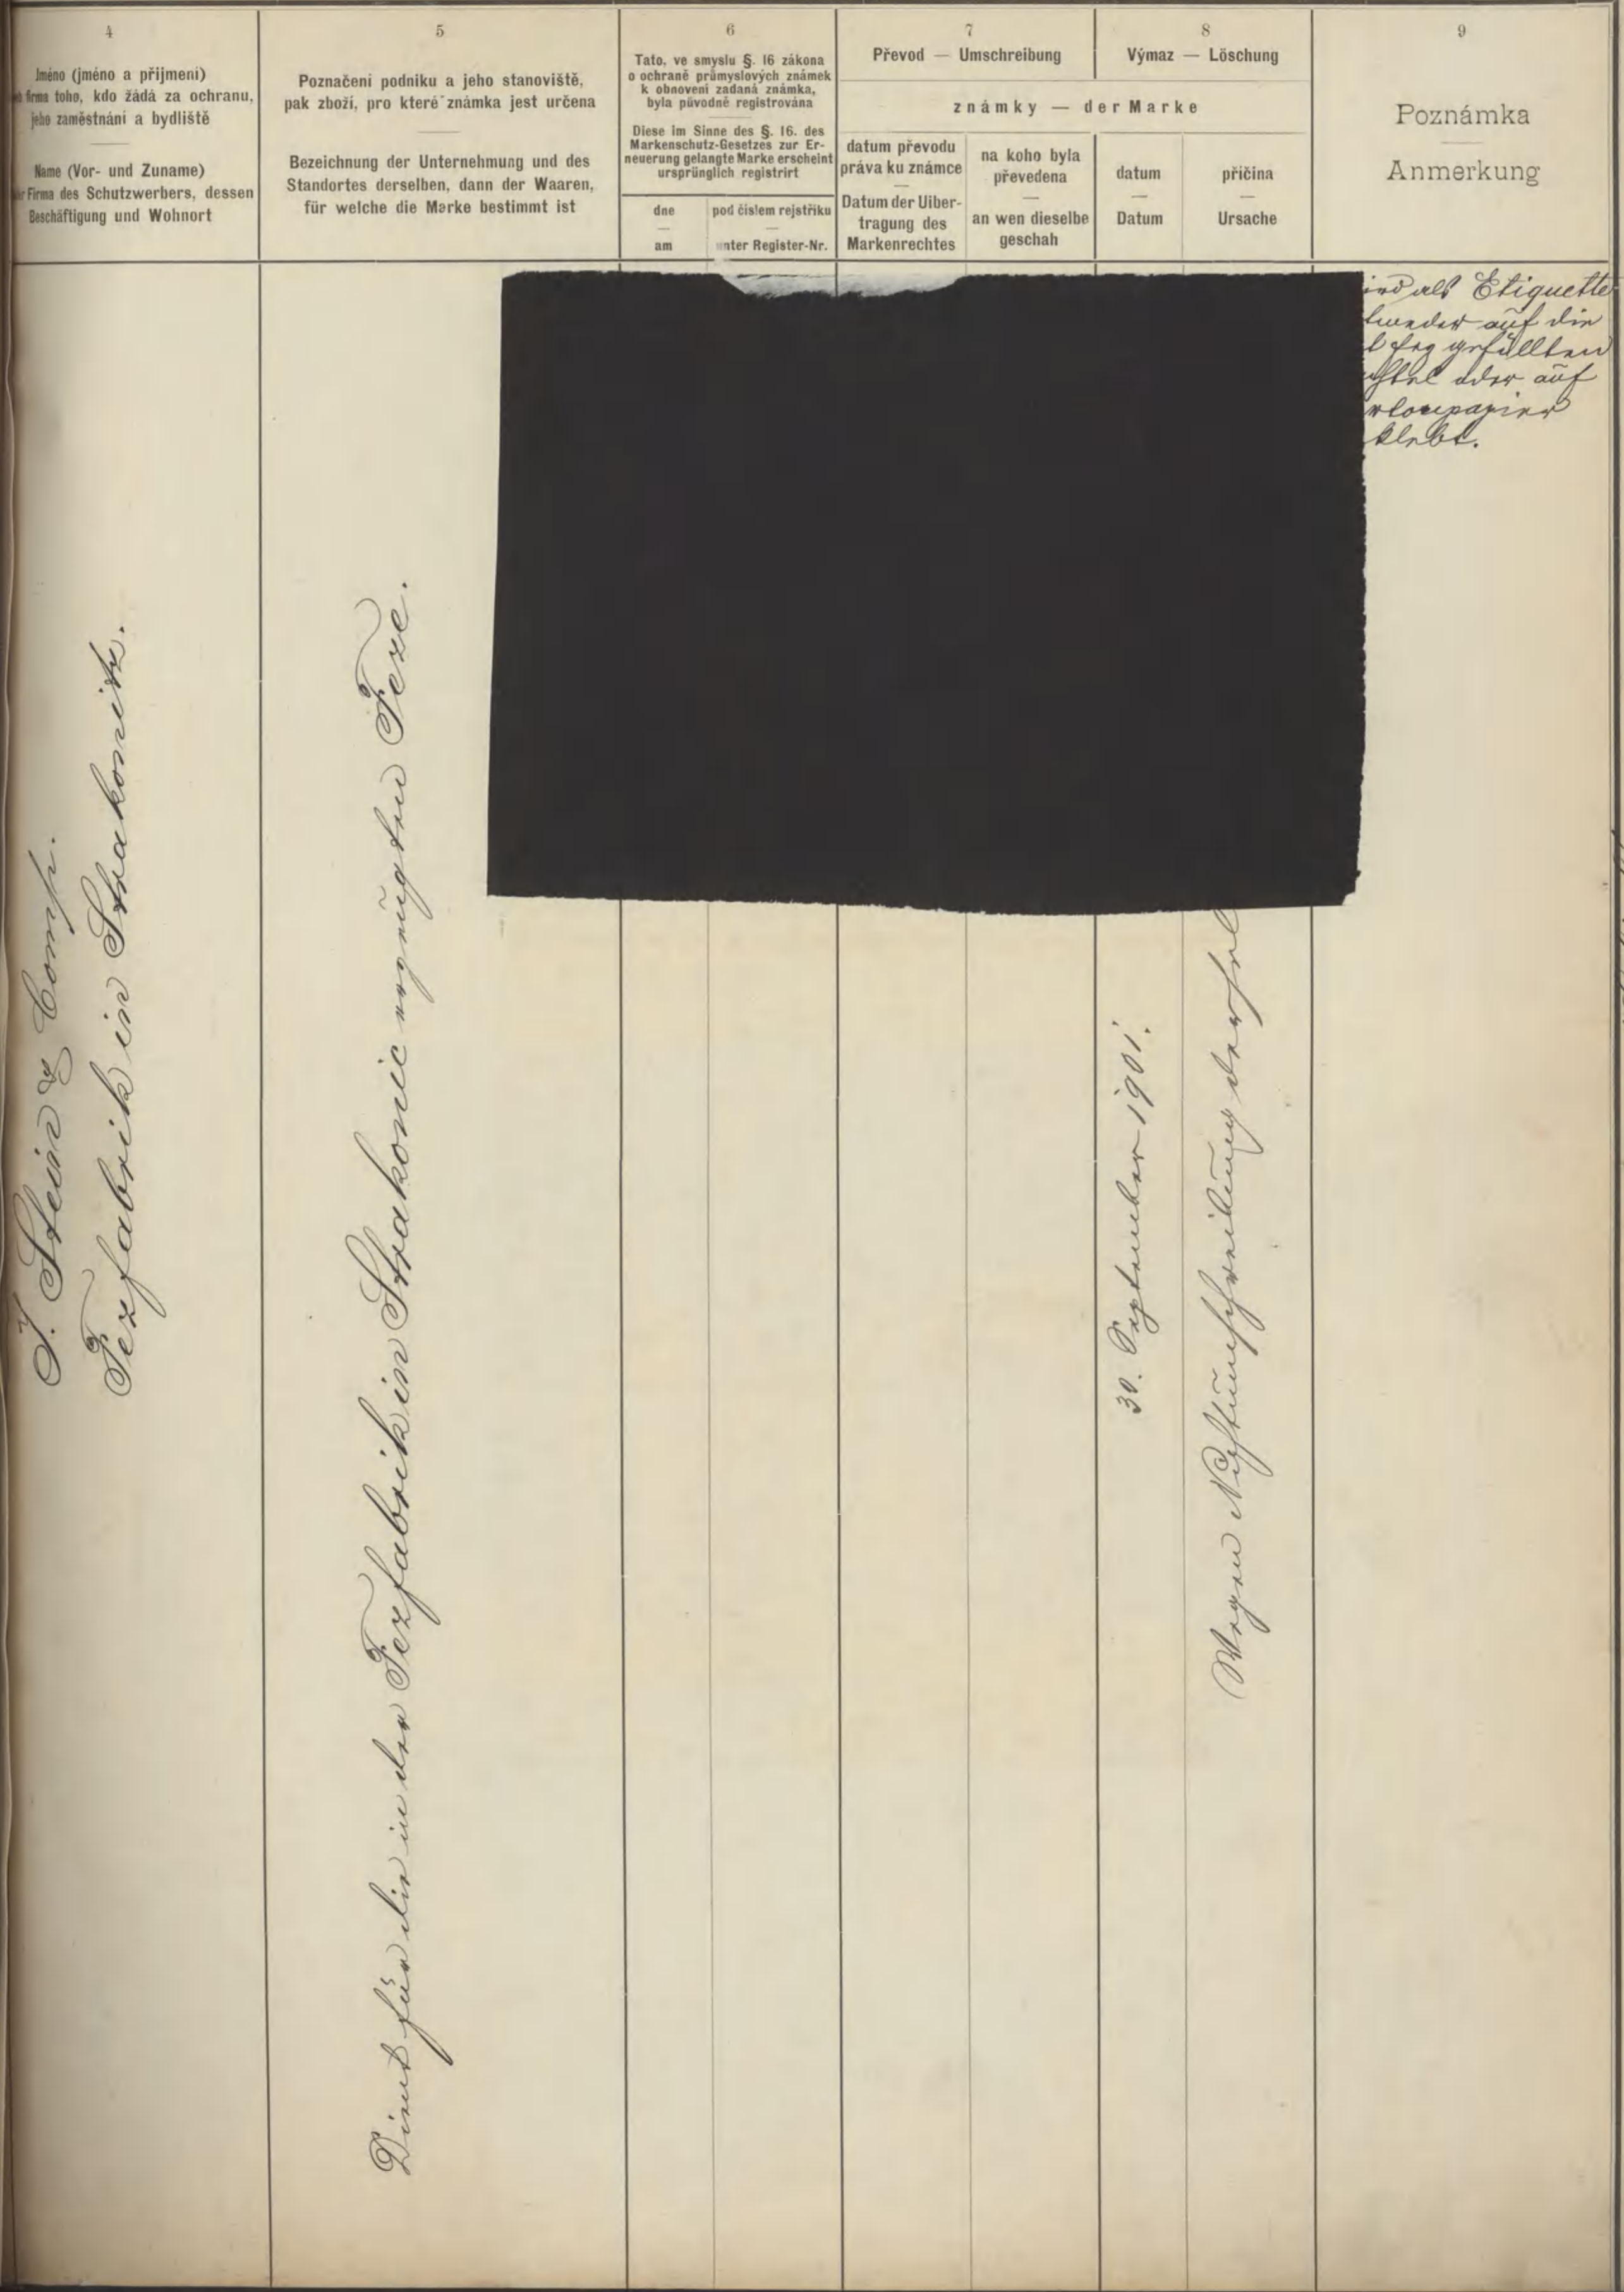 4
Jméno (jméno a příjmení)
firma toho, kdo žádá za ochranu,
jeho zaměstnání a bydliště
Name (Vor- und Zuname)
Firma des Schutzwerbers, dessen
Beschäftigung und Wohnort
5
Poznačení podniku a jeho stanoviště,
pak zboží, pro které známka jest určena
Bezeichnung der Unternehmung und des
Standortes derselben, dann der Waaren,
für welche die Marke bestimmt ist
6
Tato, ve smyslu §. 16 zákona
o ochraně průmyslových známek
k obnovení zadaná známka,
byla původně registrována
Diese im Sinne des §. 16. des
Markenschutz-Gesetzes zur Er-
neuerung gelangte Marke erscheint
ursprünglich registrirt
dne
—
am
pod číslem rejstříku
—
unter Register-Nr.
7
Převod — Umschreibung
8
Výmaz — Löschung
známky — der Marke
datum převodu
práva ku známce
—
Datum der Uiber-
tragung des
Markenrechtes
na koho byla
převedena
—
an wen dieselbe
geschah
datum
—
Datum
příčina
—
Ursache
9
Poznámka
Anmerkung
J. Stein & Comp.
Fezfabrik in Strakonitz.
Dient für die in der Fezfabrik in Strakonic erzeugten Feze.
30. September 1901.
Wegen Nichtumschreibung dersel
ird als Etiquette
tweder auf die
t Fez gefüllten
oder auf
rtonpapier
klebt.